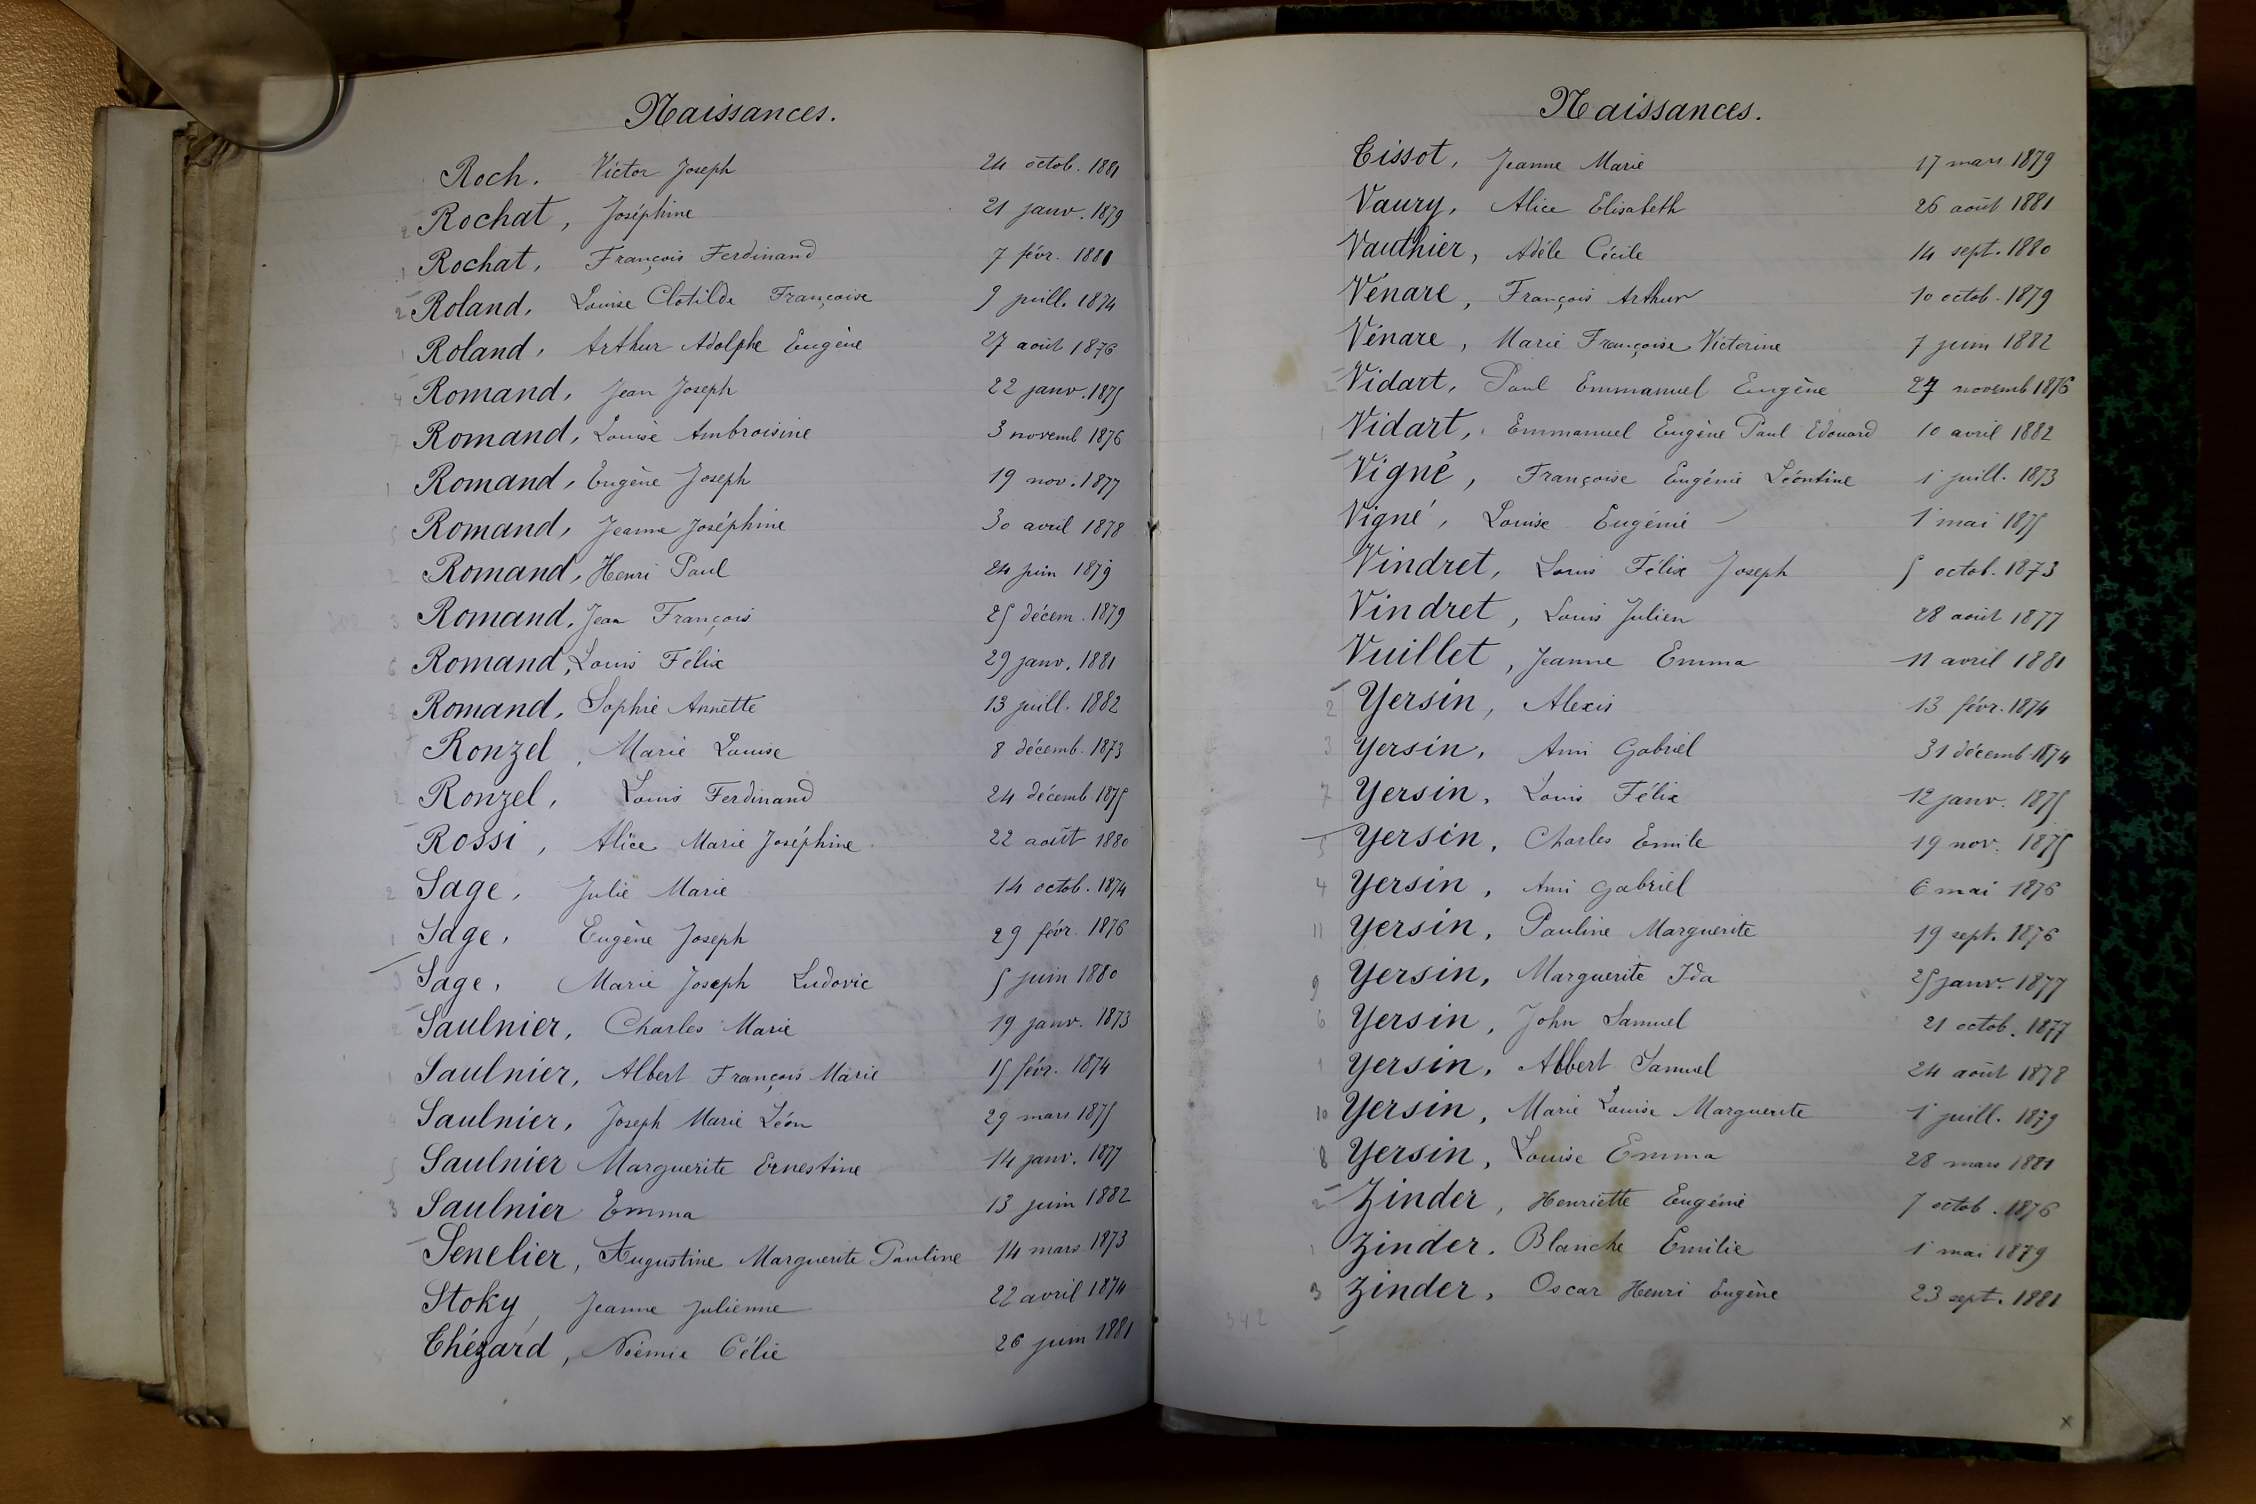 Naissances.
Roch. Victor Joseph 24 octob. 1881
2 Rochat, Joséphine 21 janv. 1879
1 Rochat, François Ferdinand 7 févr. 1881
2 Roland, Louise Clotilde Françoise 9 juill. 1874
1 Roland, Arthur Adolphe Eugène 27 août 1876
4 Romand, Jean Joseph 22 janv. 1875
7 Romand, Louise Ambroisine 3 novemb 1876
1 Romand, Eugène Joseph 19 nov. 1877
5 Romand, Jeanne Joséphine 30 avril 1878
2 Romand, Henri Paul 24 juin 1879
3 Romand, Jean François 25 décem. 1879
6 Romand, Louis Félix 29 janv. 1881
8 Romand, Sophie Annette 13 juill. 1882
Ronzel, Marie Louise 8 décemb. 1873
Ronzel, Louis Ferdinand 24 décemb 1875
Rossi, Alice Marie Joséphine 22 août 1880
2 Sage, Julie Marie 14 octob. 1874
1 Sage, Eugène Joseph 29 févr. 1876
3 Sage, Marie Joseph Ludovic 5 juin 1880
2 Saulnier, Charles Marie 19 janv. 1873
1 Saulnier, Albert François Marie 15 févr. 1874
4 Saulnier, Joseph Marie Léon 29 mars 1875
5 Saulnier Marguerite Ernestine 14 janv. 1877
3 Saulnier Emma 13 juin 1882
Senelier, Augustine Marguerite Pauline 14 mars 1873
Stoky, Jeanne Julienne 22 avril 1874
Thézard, Noémie Célie 26 juin 1881
Naissances.
Tissot, Jeanne Marie 17 mars 1879
Vaury, Alice Elisabeth 26 août 1881
Vauthier, Adèle Cécile 14 sept. 1880
Vénare, François Arthur 10 octob. 1879
Vénare, Marie Françoise Victorine 7 juin 1882
2 Vidart, Paul Emmanuel Eugène 27 novemb 1876
1 Vidart, Emmanuel Eugène Paul Edouard 10 avril 1882
Vigné, Françoise Eugénie Léontine 1 juill. 1873
Vigné, Louise Eugénie 1 mai 1875
Vindret, Louis Félix Joseph 5 octob. 1873
Vindret, Louis Julien 28 août 1877
Vuillet, Jeanne Emma 11 avril 1881
2 Yersin, Alexis 13 févr. 1874
3 Yersin, Ami Gabriel 31 décemb. 1874
7 Yersin, Louis Félix 12 janv. 1875
5 Yersin, Charles Emile 19 nov. 1875
4 Yersin, Ami Gabriel 6 mai 1876
11 Yersin, Pauline Marguerite 19 sept. 1876
9 Yersin, Marguerite Ida 25 janv. 1877
6 Yersin, John Samuel 21 octob. 1877
1 Yersin, Albert Samuel 24 août 1878
10 Yersin, Marie Louise Marguerite 1 juill. 1879
8 Yersin, Louise Emma 28 mars 1881
2 Zinder, Henriette Eugénie 7 octob. 1876
1 Zinder, Blanche Emilie 1 mai 1879
3 Zinder, Oscar Henri Eugène 23 sept. 1881
342
x